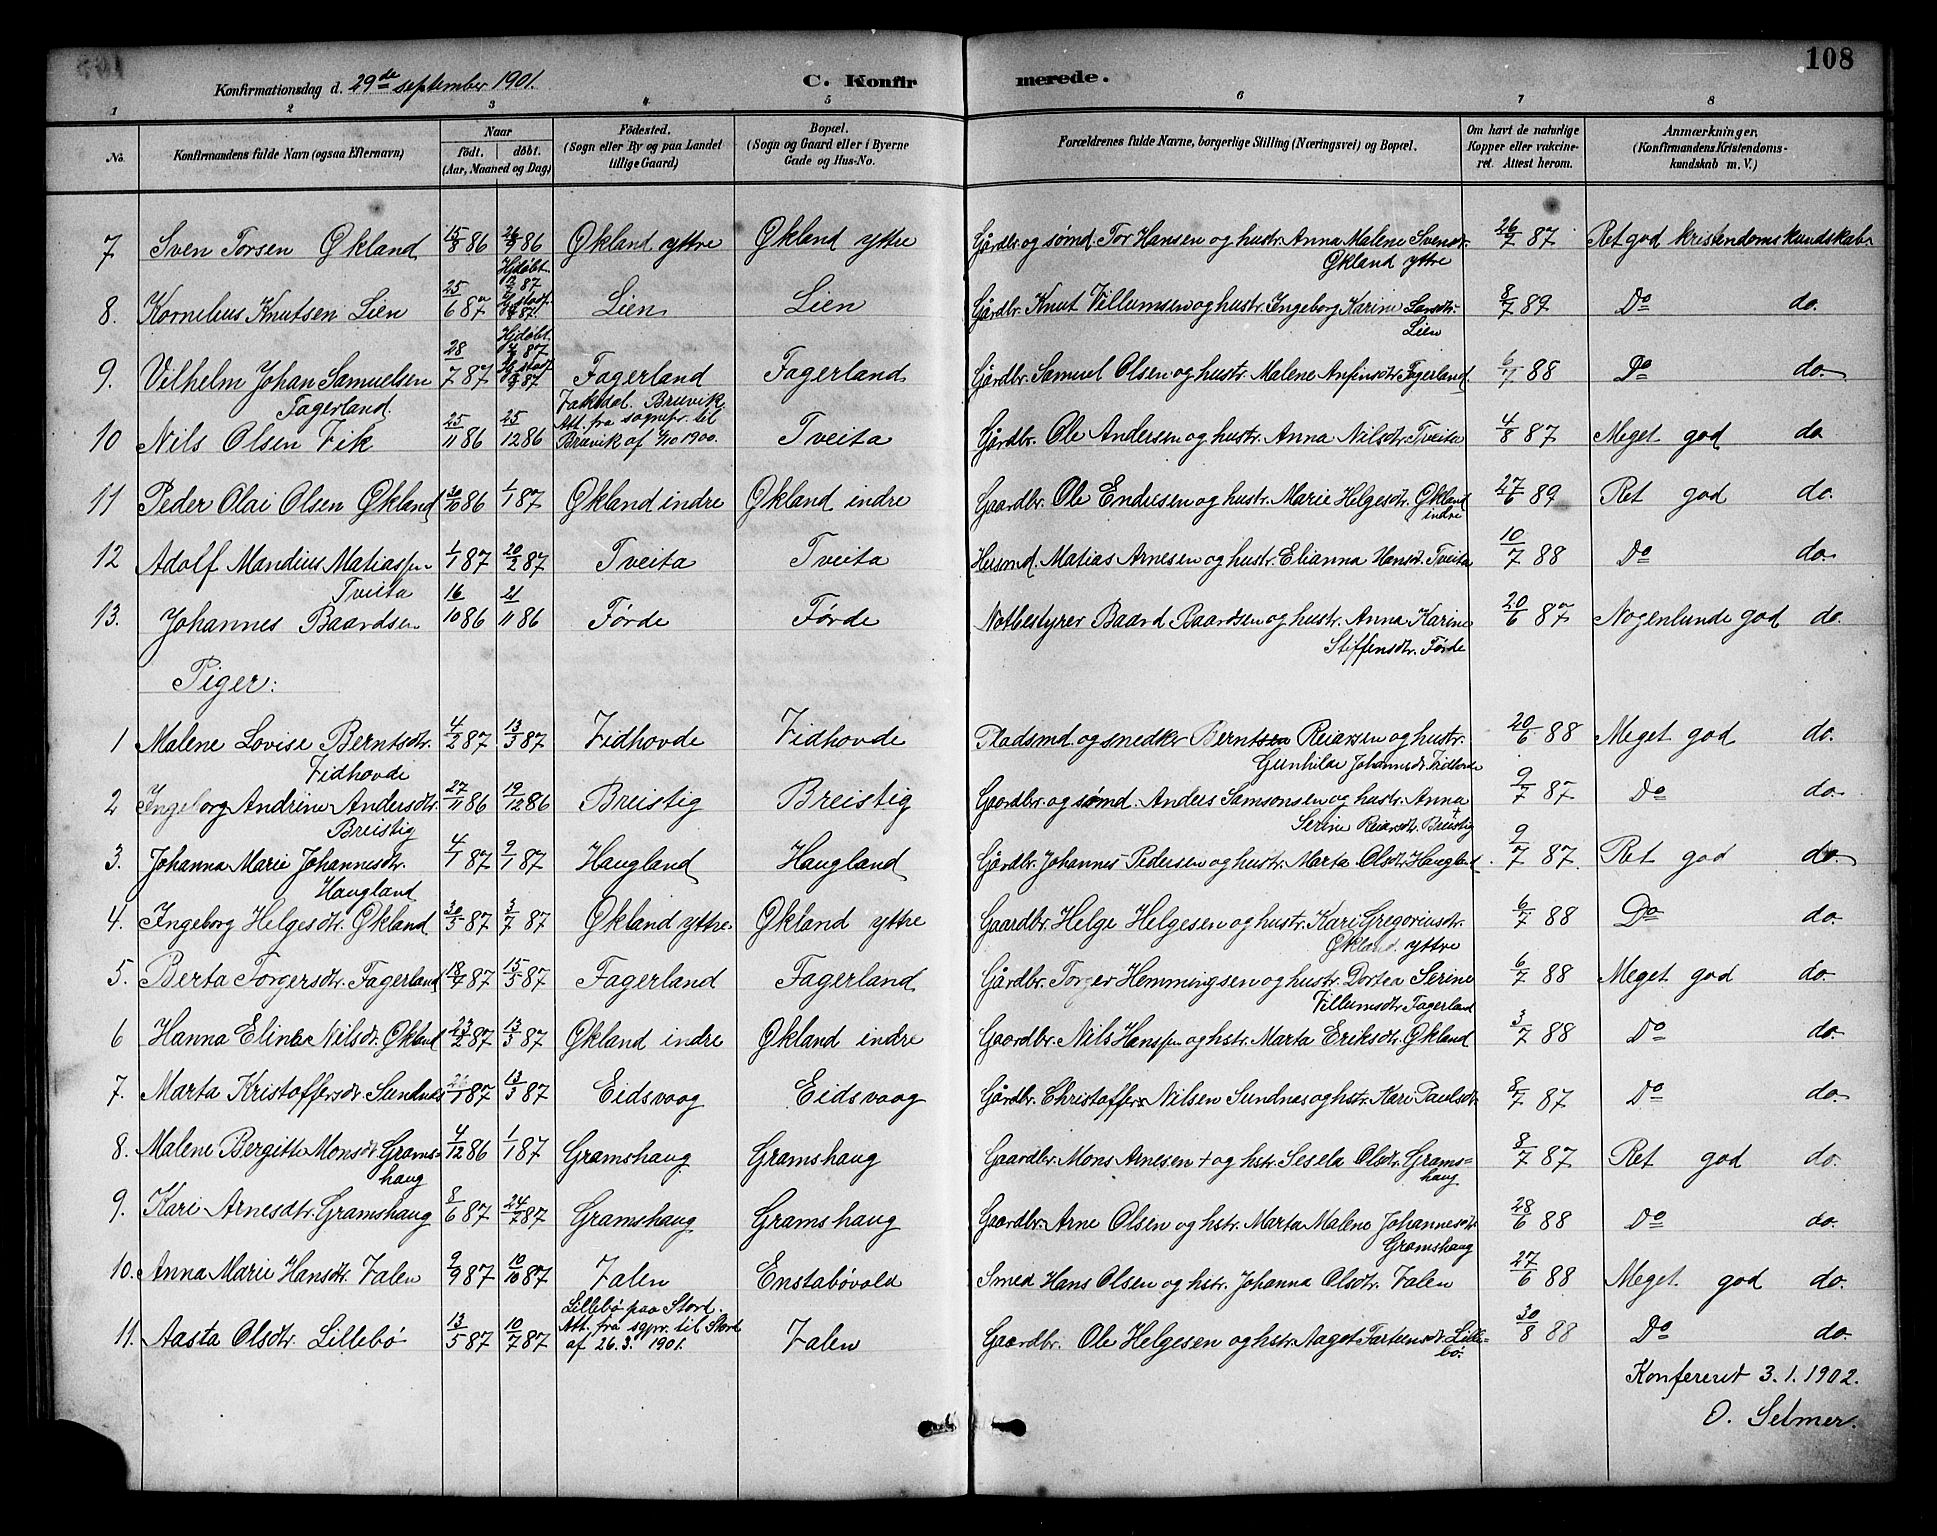 108
Konfirmationsdag d. 29de september 1901.
C. Konfirmerede.
1 2 3 4 5 6 7 8
No. Konfirmandens fulde Navn (ogsaa Efternavn) Naar født. døbt. (Aar, Maaned og Dag) Fødested. (Sogn eller By og paa Landet tillige Gaard) Bopæl. (Sogn og Gaard eller i Byerne Gade og Hus-No. Forældrenes fulde Navne, borgerlige Stilling (Næringsvei) og Bopæl. Om havt de naturlige Kopper eller vakcineret. Attest herom. Anmærkninger. (Konfirmandens Kristendomskundskab m. V.)
7 Sven Torsen Økland 15/8 86 26/9 86 Økland yttre Økland yttre Gårdbr. og sømd. Tor Hansen og hustr. Anna Malene Svensdt. Økland yttre 26/7 87 Ret god kristendomskundskab
8. Kornelius Knutsen Lien 25/6 87 Hjdøbt. Lien Lien Gårdbr. Knut Villumsen og hustr. Ingeborg Karine Larsdtr. Lien 8/7 89 Do do.
9. Vilhelm Johan Samuelsen Fagerland 28/7 87 Hjdøbt. Fagerland Fagerland Gårdbr. Samuel Olsen og hustr. Malene Anfinsdtr. Fagerland. 6/7 88 Do do.
10 Nils Olsen Vik 25/11 86 25/12 86 Bruvik Att. fra sognepr. til Bruvik af 1900. Tveita Gårdbr. Ole Andersen og hustr. Anna Nilsdtr. Tveita 4/8 87 Meget god do
11 Peder Olai Olsen Økland 30/10 86 1/1 87 Økland indre Økland indre Gaardbr. Ole Endresen og hustr. Marie Helgesdtr. Økland indre 27/6 89 Ret god do.
12 Adolf Mandius Matiassen Tveita 1/1 87 20/2 87 Tveita Tveita Husmd. Matias Arnesen og hustr. Elianna Hansdt. Tveita 10/7 88 Do do.
13. Johannes Baardsen 16/10 86 21/11 86 Førde Førde Notbestyrer Baard Baardsen og hustr. Anna Karine Steffensdtr. Førde 20/6 87 Nogenlunde god do.
Piger:
1 Malene Lovise Berntsdtr. Vidhovde 4/2 87 13/3 87 Vidhovde Vidhovde Pladsmd. og snedker Berntsen Reiarsen og hustr. Gunhilde Johannesdt. Vidhovde 20/6 88 Meget god do.
2 Ingeborg Andrine Andersdtr. Breistig 27/11 86 19/12 86 Breistig Breistig Gaardbr. og sømd. Anders Samsonsen og hustr. Anna Serine Reiarsdtr. Breistig 9/7 87 Do do.
3. Johanna Marie Johannesdtr. Haugland 4/1 87 9/1 87 Haugland Haugland Gårdbr. Johannes Pedersen og hustr. Marta Olsdtr. Haugland. 9/7 87. Ret god do.
4. Ingeborg Helgesdtr. Økland 30/5 87 3/7 87 Økland yttre. Økland yttre Gaardbr. Helge Helgesen og hustr. Kari Gregoriusdtr. Økland yttre 6/7 88 Do do.
5. Berta Torgersdtr. Fagerland 18/4 87 15/5 87 Fagerland Fagerland Gårdbr. Torger Hemmingsen og hustr. Dortea Serine Villumsdtr. Fagerland 6/7 88 Meget god do.
6 Hanna Eline Nilsdt. Økland 23/2 87 13/3 87 Økland indre Økland indre Gaardbr. Nils Hanssen og hstr. Marta Eriksdtr. Økland 3/7 88 Do do.
7. Marta Kristoffersdt. Sundnes /1 87 13/3 87 Eidsvaag Eidsvaag Gårdbr. Christoffer Nilsen Sundnas og hstr. Kari Paulsdt. 8/7 87 Do do.
8. Malene Bergitte Monsdt. Gramshaug 4/12 86 1/1 87 Gramshaug Gramshaug Gaardbr. Mons Arnesen + og hstr. Sesela Olsdtr. Gramshaug 8/7 87 Ret god do.
9. Kari Arnesdtr. Gramshaug 8/6 87 24/7 87 Gramshaug Gramshaug Gaardbr. Arne Olsen og hstr. Marta Malene Johannesdtr. Gramshaug 28/6 88 Do do.
10. Anna Marie Hansdtr. Valen 9/9 87 10/10 87 Valen Enstabøvold Smed Hans Olsen og hstr. Johanna Olsdtr. Valen 27/6 88 Meget god do.
11. Aasta Olsdtr. Lillebø 13/5 87 10/7 87 Lillebø paa Stord. Att. fra sgpr. til Stord af 26.3. 1901. Valen Gaardbr. Ole Helgesen og hstr. Aaget Tarkensdt. Lillebø. 30/8 88 Do do.
Konfereret 3.1.1902.
O. Selmer.